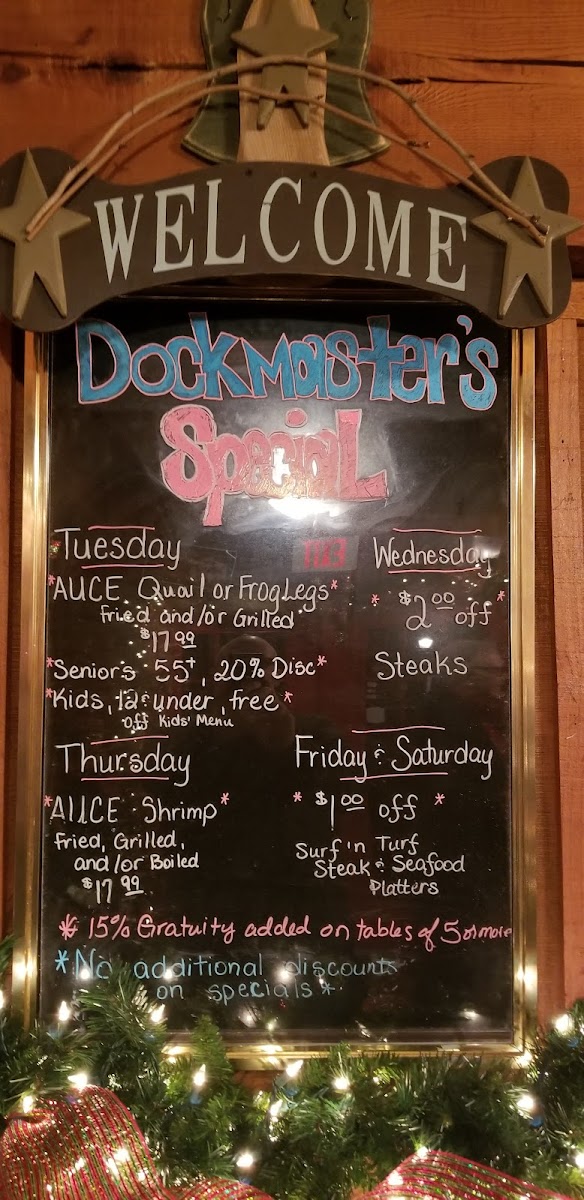 WELCOME
Dockmaster's
Special
Tuesday
*AUCE Quail or Frog Legs*
Fried and/or Grilled
$17.99
*Seniors 55+, 20% Disc*
*Kids, 12 & under, free*
off Kids' Menu
Wednesday
* $2.00 off *
Steaks
Thursday
*AUCE Shrimp*
Fried, Grilled,
and/or Boiled
$17.99
Friday & Saturday
* $1.00 off *
Surf 'n Turf
Steak & Seafood
Platters
* 15% Gratuity added on tables of 5 or more
*No additional discounts
on specials*